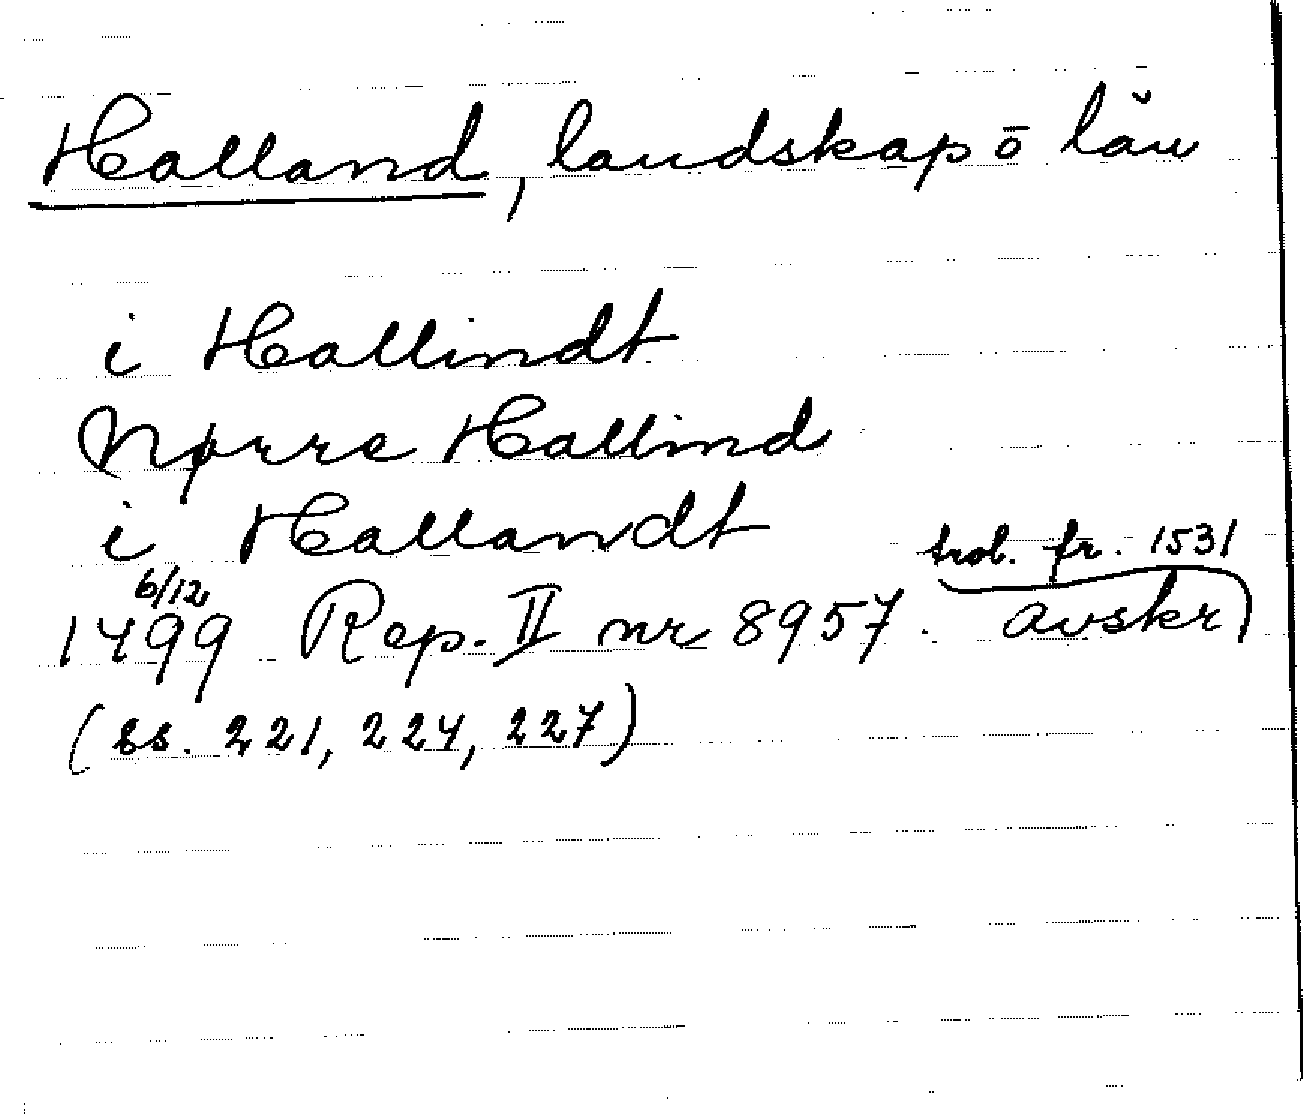 Halland, landskap o län
i Hallindt
Nørre Hallind
i Hallandt
trol. fr. 1531
6/12
1499 Rep. II nr 8957. avskr)
(ss. 221, 224, 227)